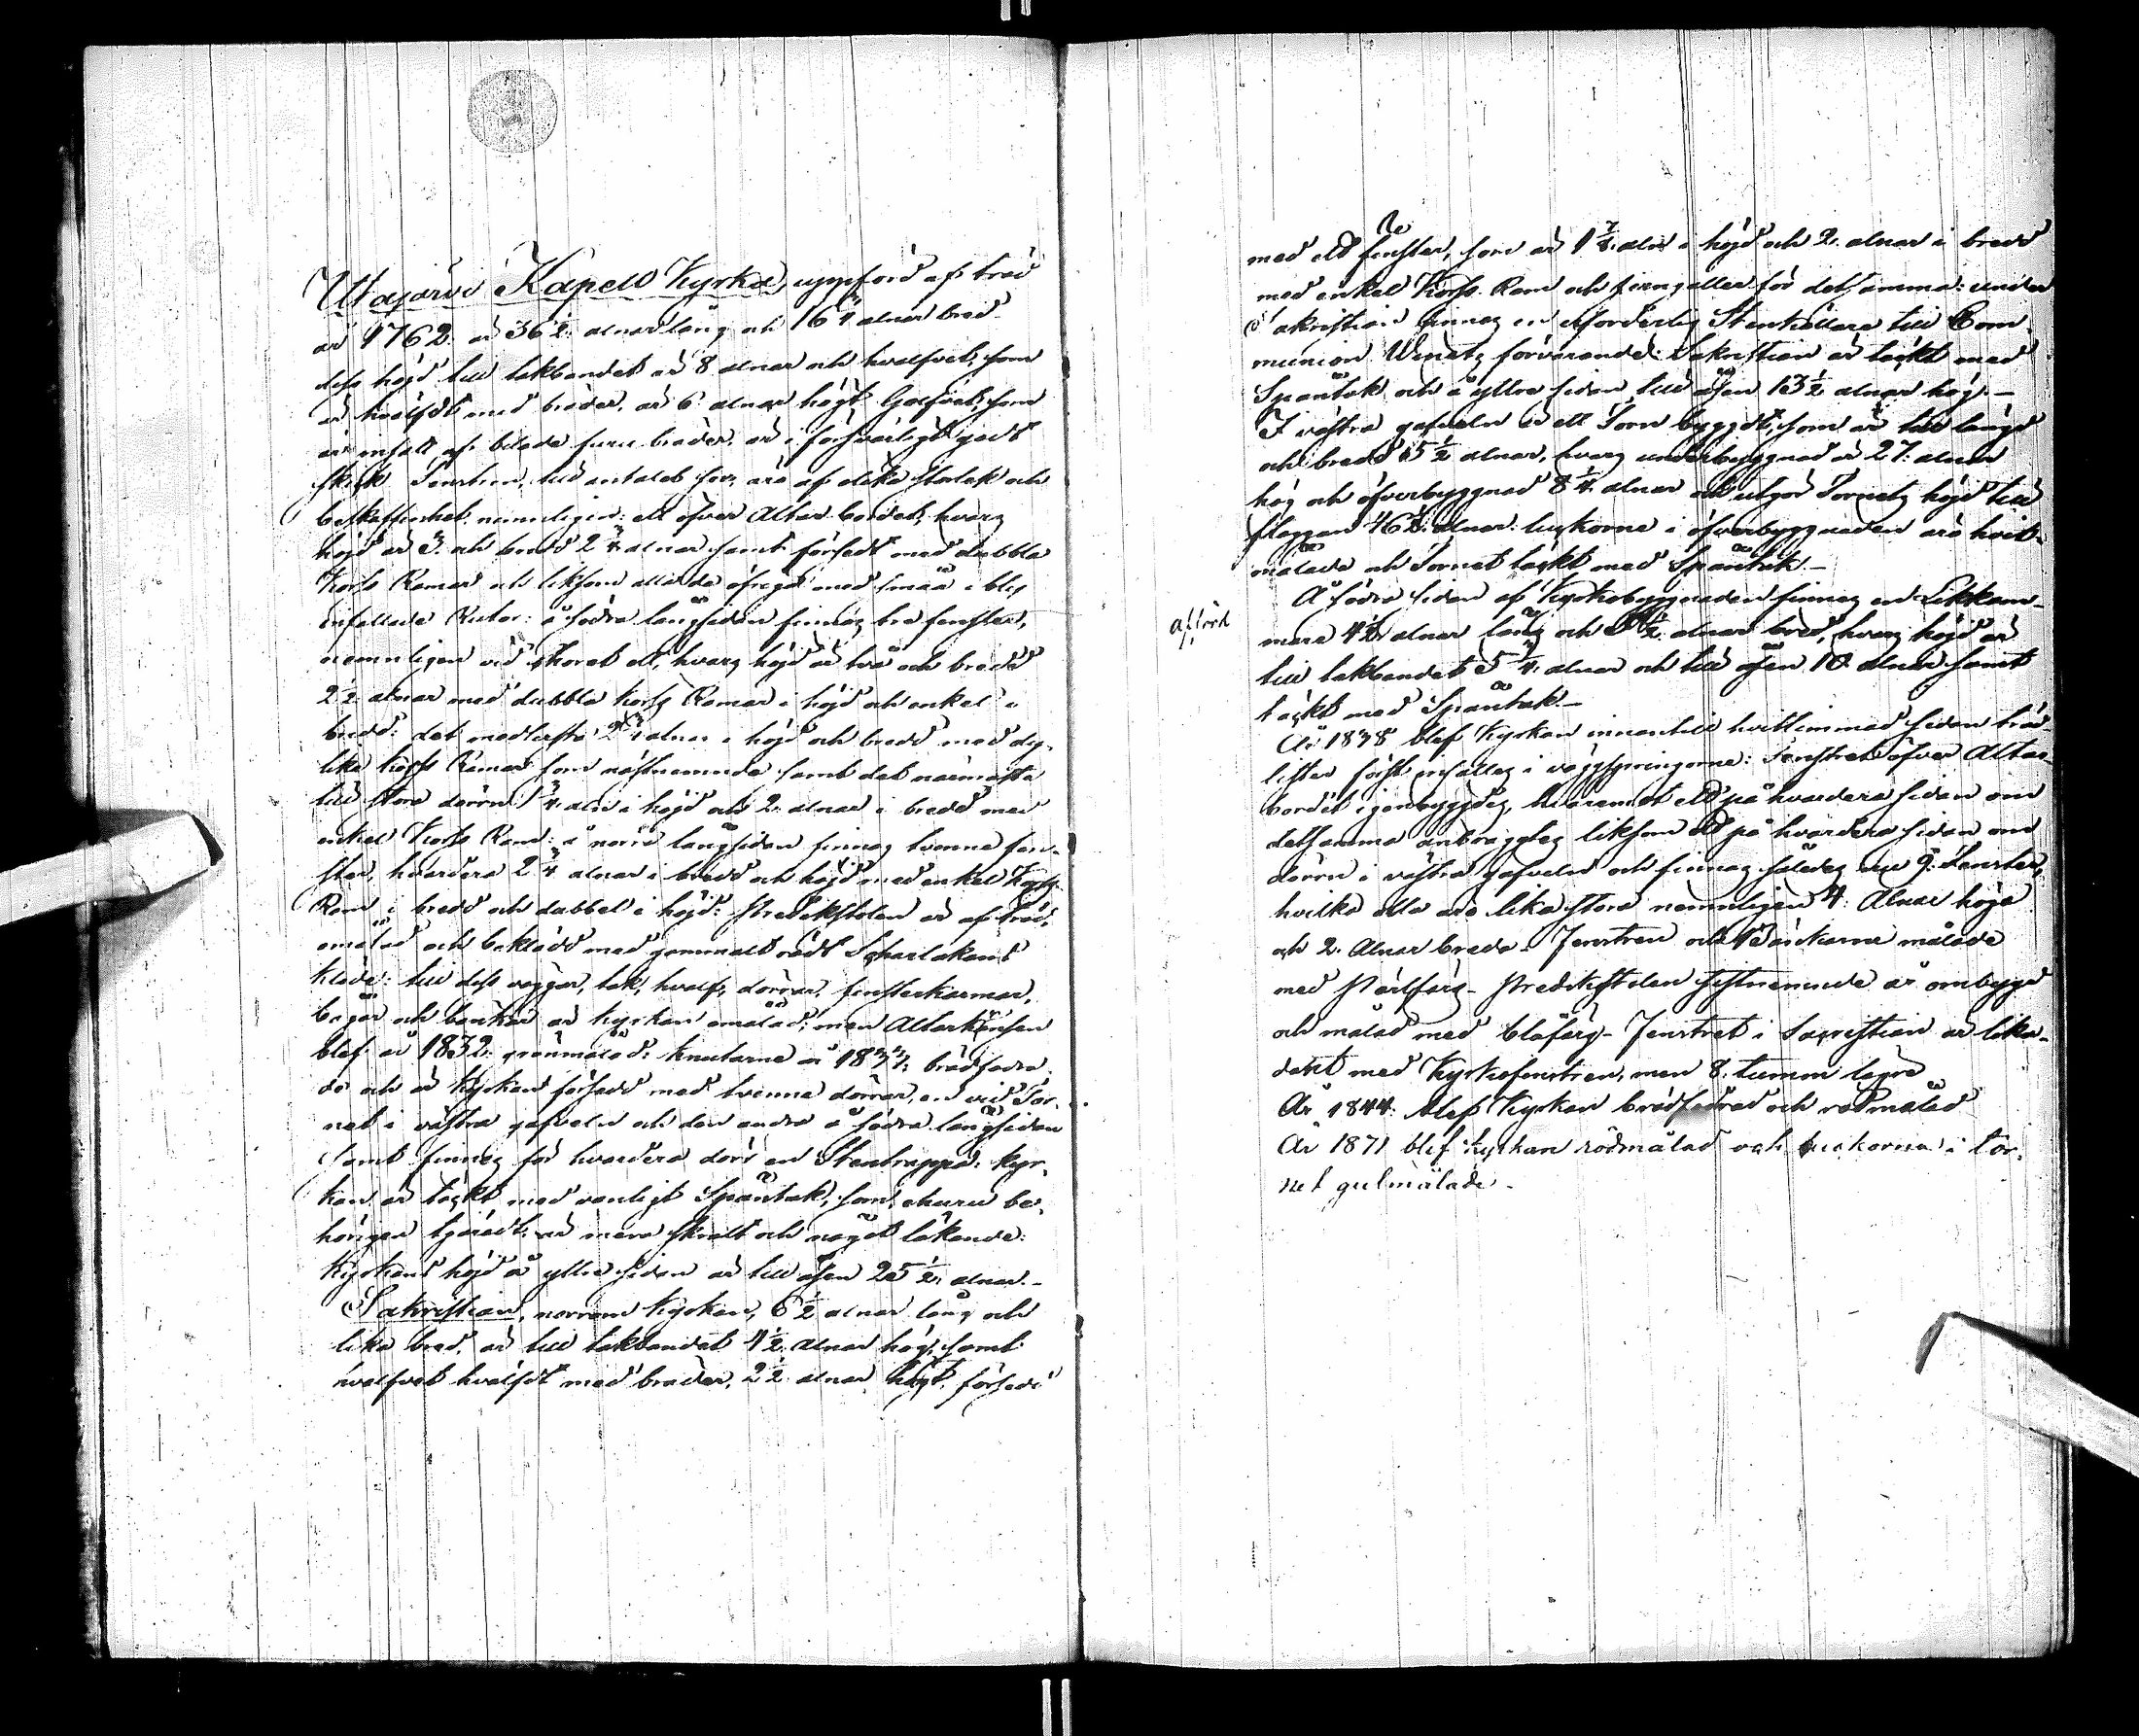 Utajärvi Kapells Kyrka, uppförd af träd
år 1762. är 36½ alnar lång och 16¼ alnar bred
dess höjd till takbandet är 8 alnar och hvalfvet, som
är hvälfdt med bräder, är 6 alnar högt. Golfvet, som
är infalt af bilade furu bräder, är i försvarligt godt
skick. Fenstren, till antalet sex, äro af olika storlek och
beskaffenhet, nemnligen: ett öfver Altar bordet, hvars
höjd är 3. och bredd 2¾ alnar samt försedt med dubbla
Korss Ramar och liksom alla de öfriga med små i bly
infattade Rutor: å södra långsidan finnas tre fenster,
nemnligen vid Choret ett, hvars höjd är två och bredd
2½ alnar med dubbla korss Ramar i höjd och enkel i
bredd: det medlersta 2¼ alnar i höjd och bredd med dy-
lika korss Ramar som nästnemnde samt det närmaste
till stora dörrn 1¾ aln i höjd och 2. alnar i bredd med
enkel Korss Ram: å norra långsidan finnas tvenne fen-
ster, hvardera 2¼ alnar i bredd och höjd med enkel Korss
Ram i bredd och dubbel i höjd: Predikstolen är af träd,
omålad och beklädd med gammalt rödt Scharlakans
kläde: till dess väggar, tak, hvalf, dörrar, fensterkarmar,
bågar och bänkar är kyrkan omålad; men Altarkransen
blef år 1832. grönmålad: knutarne år 1837: brädfodra-
de och är Kyrkan försedd med tvenne dörrar, en vid Tor-
net i västra gafveln och den andra å södra långsidan
samt finnes för hvardera dörr en Stentrappa: kyr-
kan är täckt med vanligt Spåntak, som, ehuru be-
hörigen tjäradt, är mera skralt och något läkande:
Kyrkans höjd å yttre sidan är till åsen 25½ alnar.-
Sakristian, norrom Kyrkan, 6½ alnar lång och
lika bred, är till takbandet 4½ alnar hög, samt
hvalfvet hvälfdt med bräder, 2½ alnar högt, försedd
med ett fenster, som är 1⅞ aln i höjd och 2. alnar i bredd
med enkel Korss Ram och jerngaller för detsamma: under
Sakristian finnes en oförderlig Stenkällare till Com-
munion Winets förvarande: Sakristian är täckt med
Spåntak och å yttre sidan till åsen 13½ alnar hög.-
I västra gafveln är ett Torn bygdt, som är till längd
och bredd 15½ alnar, hvars underbyggnad är 27: alnar
hög och öfverbyggnad 8¼ alnar och utgör Tornets höjd till
flaggan 46½ alnar: luckorne i öfverbyggnaden äro hvit-
målade och Tornet täckt med Spåntak.-
afförd
Å södra sidan af Kyrkobyggnaden finnes en Likkam-
mare 4½ alnar lång och 3½ alnar bred, hvars höjd är
till takbandet 5¼ alnar och till åsen 10. alnar samt
täckt med Spåntak.-
År 1838 blef Kyrkan innantill hvitlimmad sedan träd-
lister först infälles i väggspringorne: Fenstret öfver Altar-
bordet igenbygdes, hvaremot ett på hvardera sidan om
detsamma anbragtes liksom ett på hvardera sidan om
dörrn i västra gafveln och finnes således nu 9: Fenster,
hvilka alla äro lika stora nemnligen 4: Alnar höga
och 2. Alnar breda - Fenstren och Bänkarne målade
med Pärlfärg - Predikstolen sistnemnde år ombygd
och målad med blåfärg - Fenstret i Sacristian är lika-
dant med Kyrkofenstren, men 8. tummen lägre
År 1844: blef Kyrkan brädfodrad och rödmålad
År 1871 blef kyrkan rödmålad och luckorna i tor-
net gulmålade -